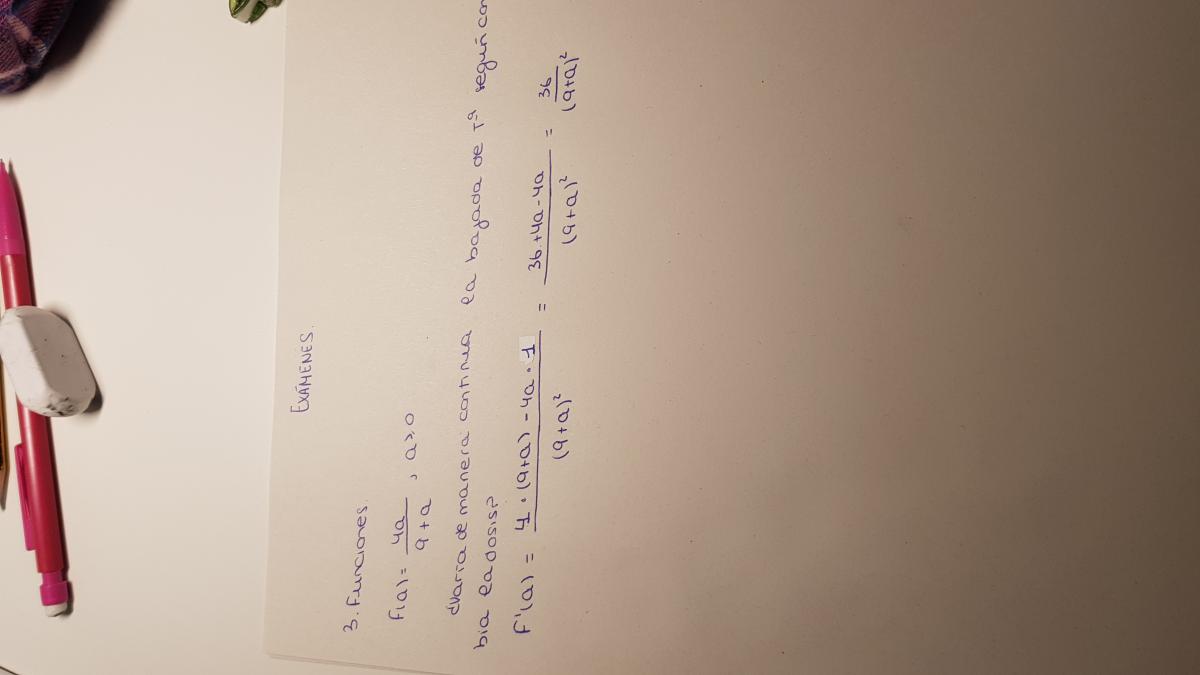 EXÁMENES.
3. Funciones.
F(a) = 4a / 9+a , a≥0
¿Varía de manera continua la bajada de Tª según cam
bia la dosis?
F'(a) = 4 · (9+a) - 4a · 1 / (9+a)² = 36+4a-4a / (9+a)² = 36 / (9+a)²